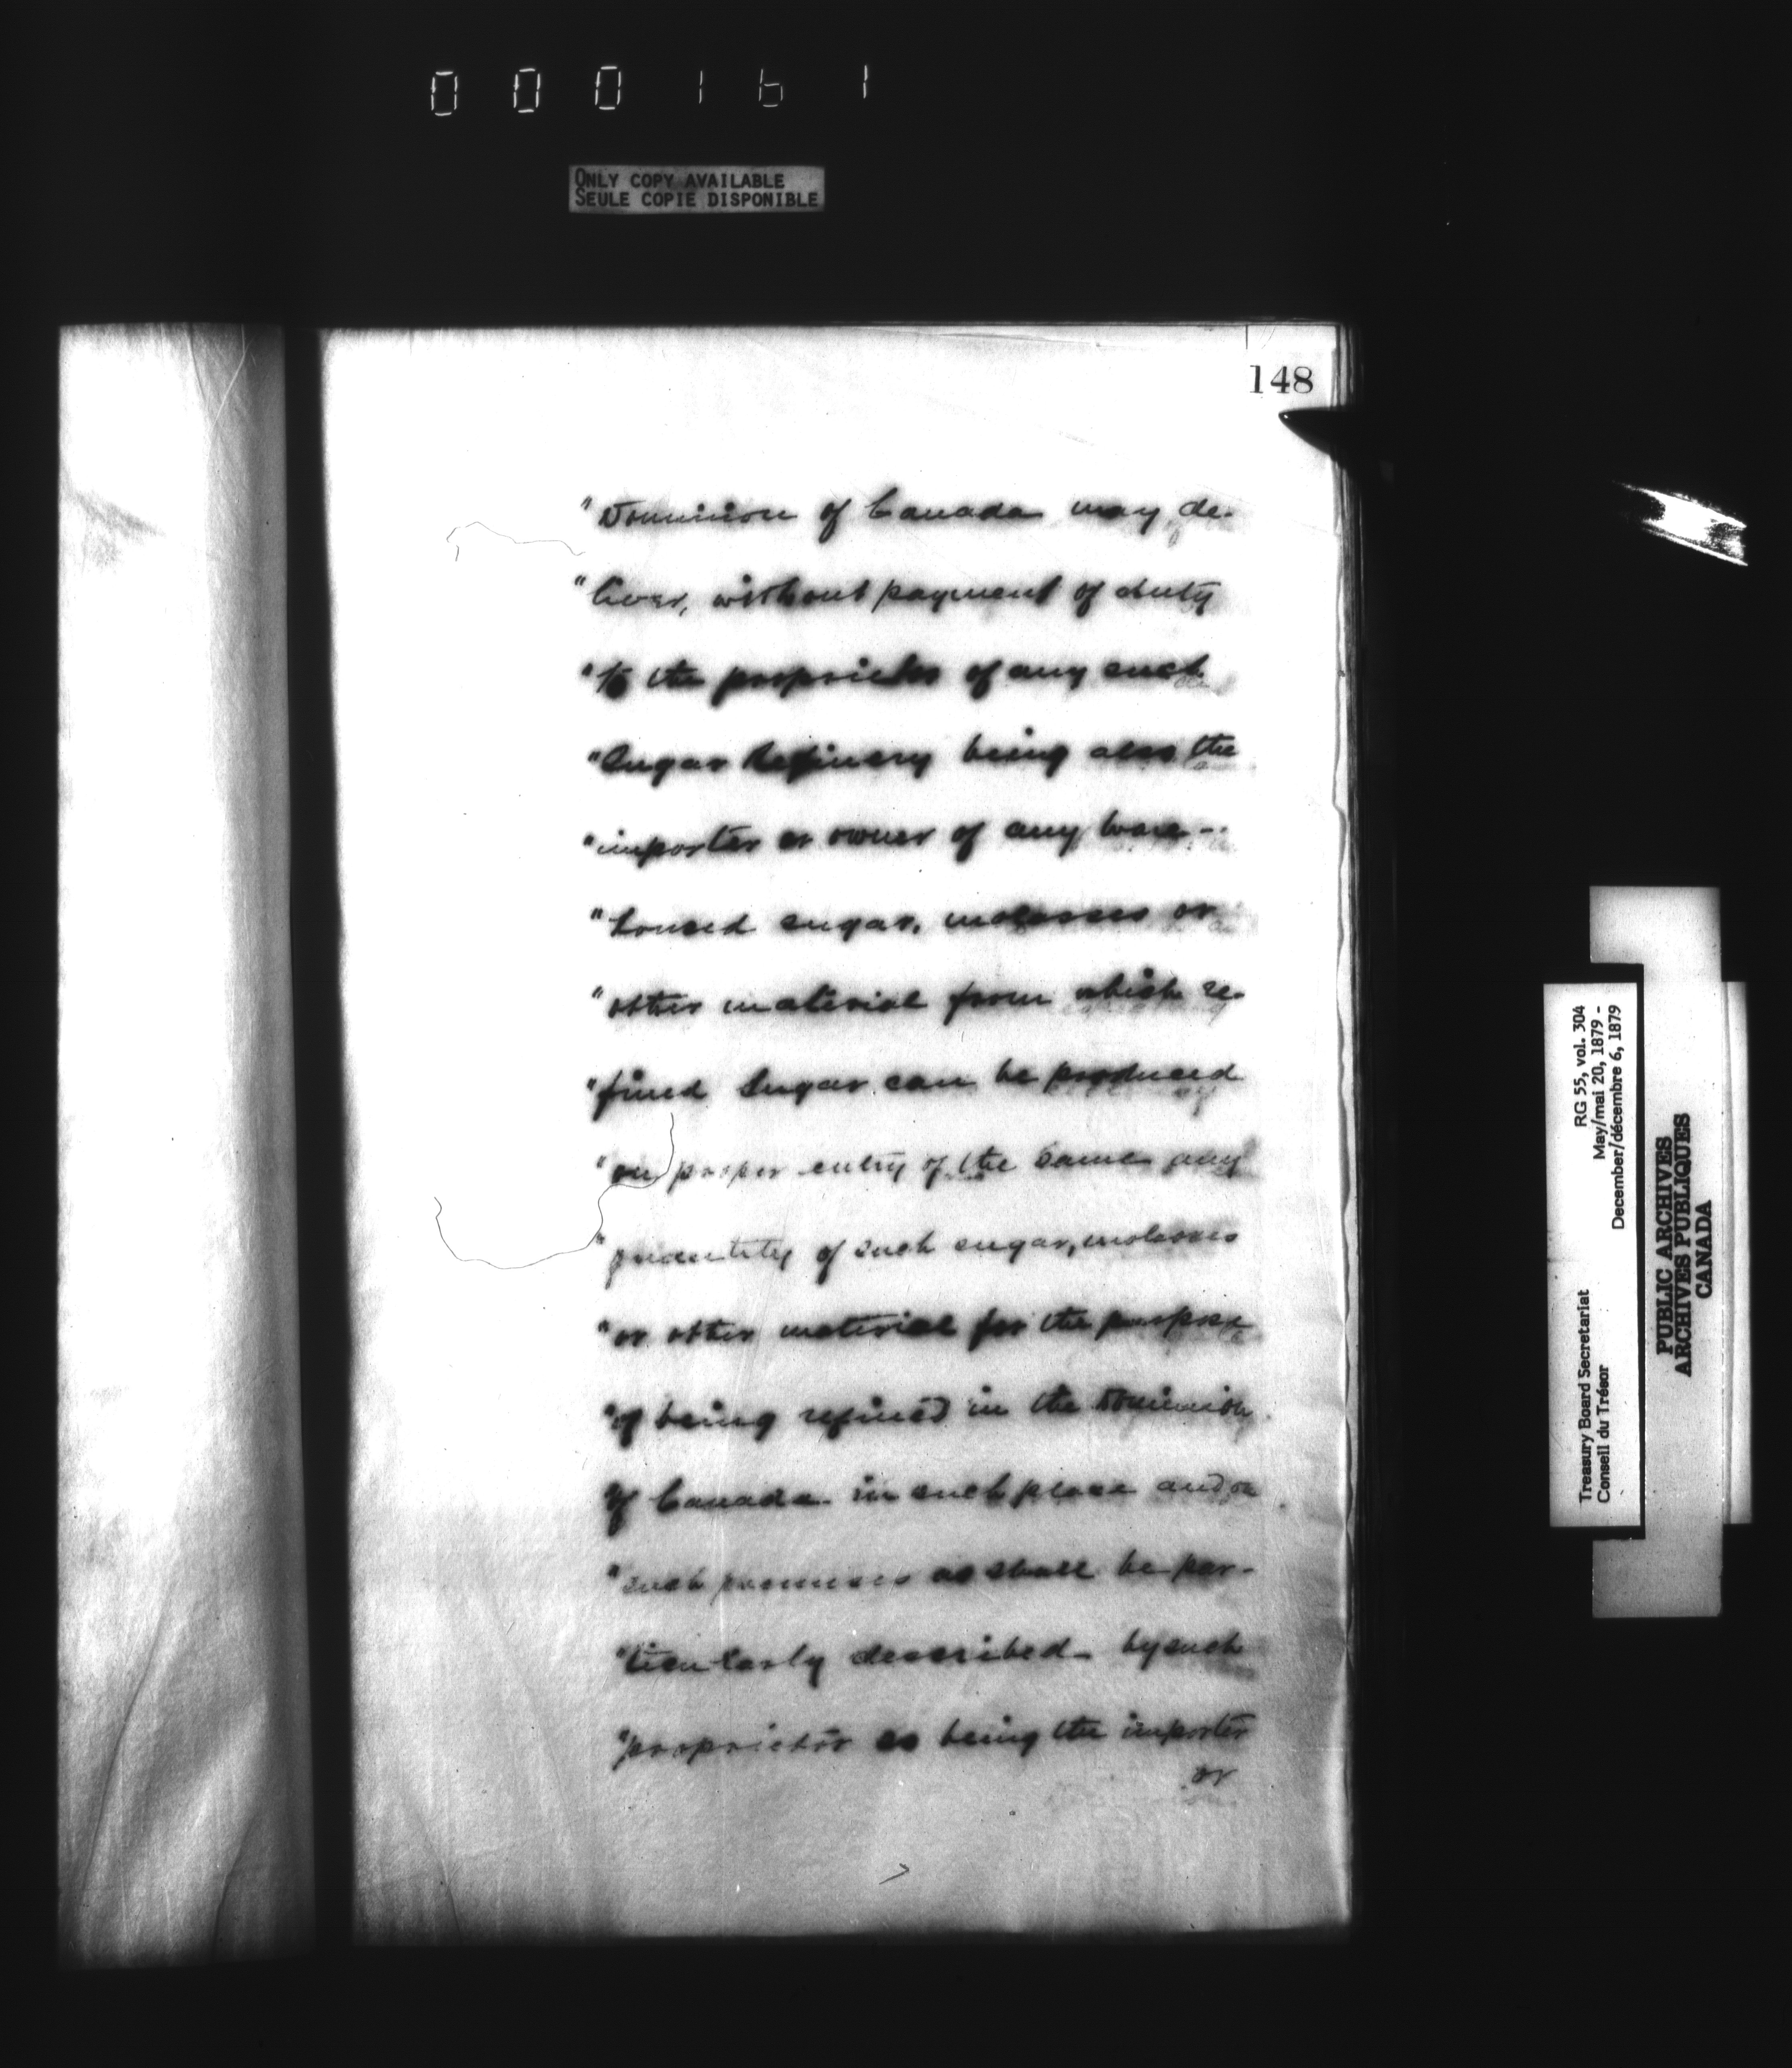 000161
ONLY COPY AVAILABLE
SEULE COPIE DISPONIBLE
148
"Dominion of Canada may de-
"liver, without payment of duty
"to the proprietor of any such
"Sugar Refinery being also the
"importer or owner of any ware-
"housed sugar, molasses or
"other material from which re-
"fined Sugar can be produced
"on proper entry of the same any
"quantity of such sugar, molasses
"or other material for the purpose
"of being refined in the Dominion
"of Canada in such place and on
"such premises as shall be par-
"ticularly described by such
"proprietor as being the importer
or
Treasury Board Secretariat RG 55, vol. 304
Conseil du Trésor May/mai 20, 1879 -
December/décembre 6, 1879
PUBLIC ARCHIVES
ARCHIVES PUBLIQUES
CANADA